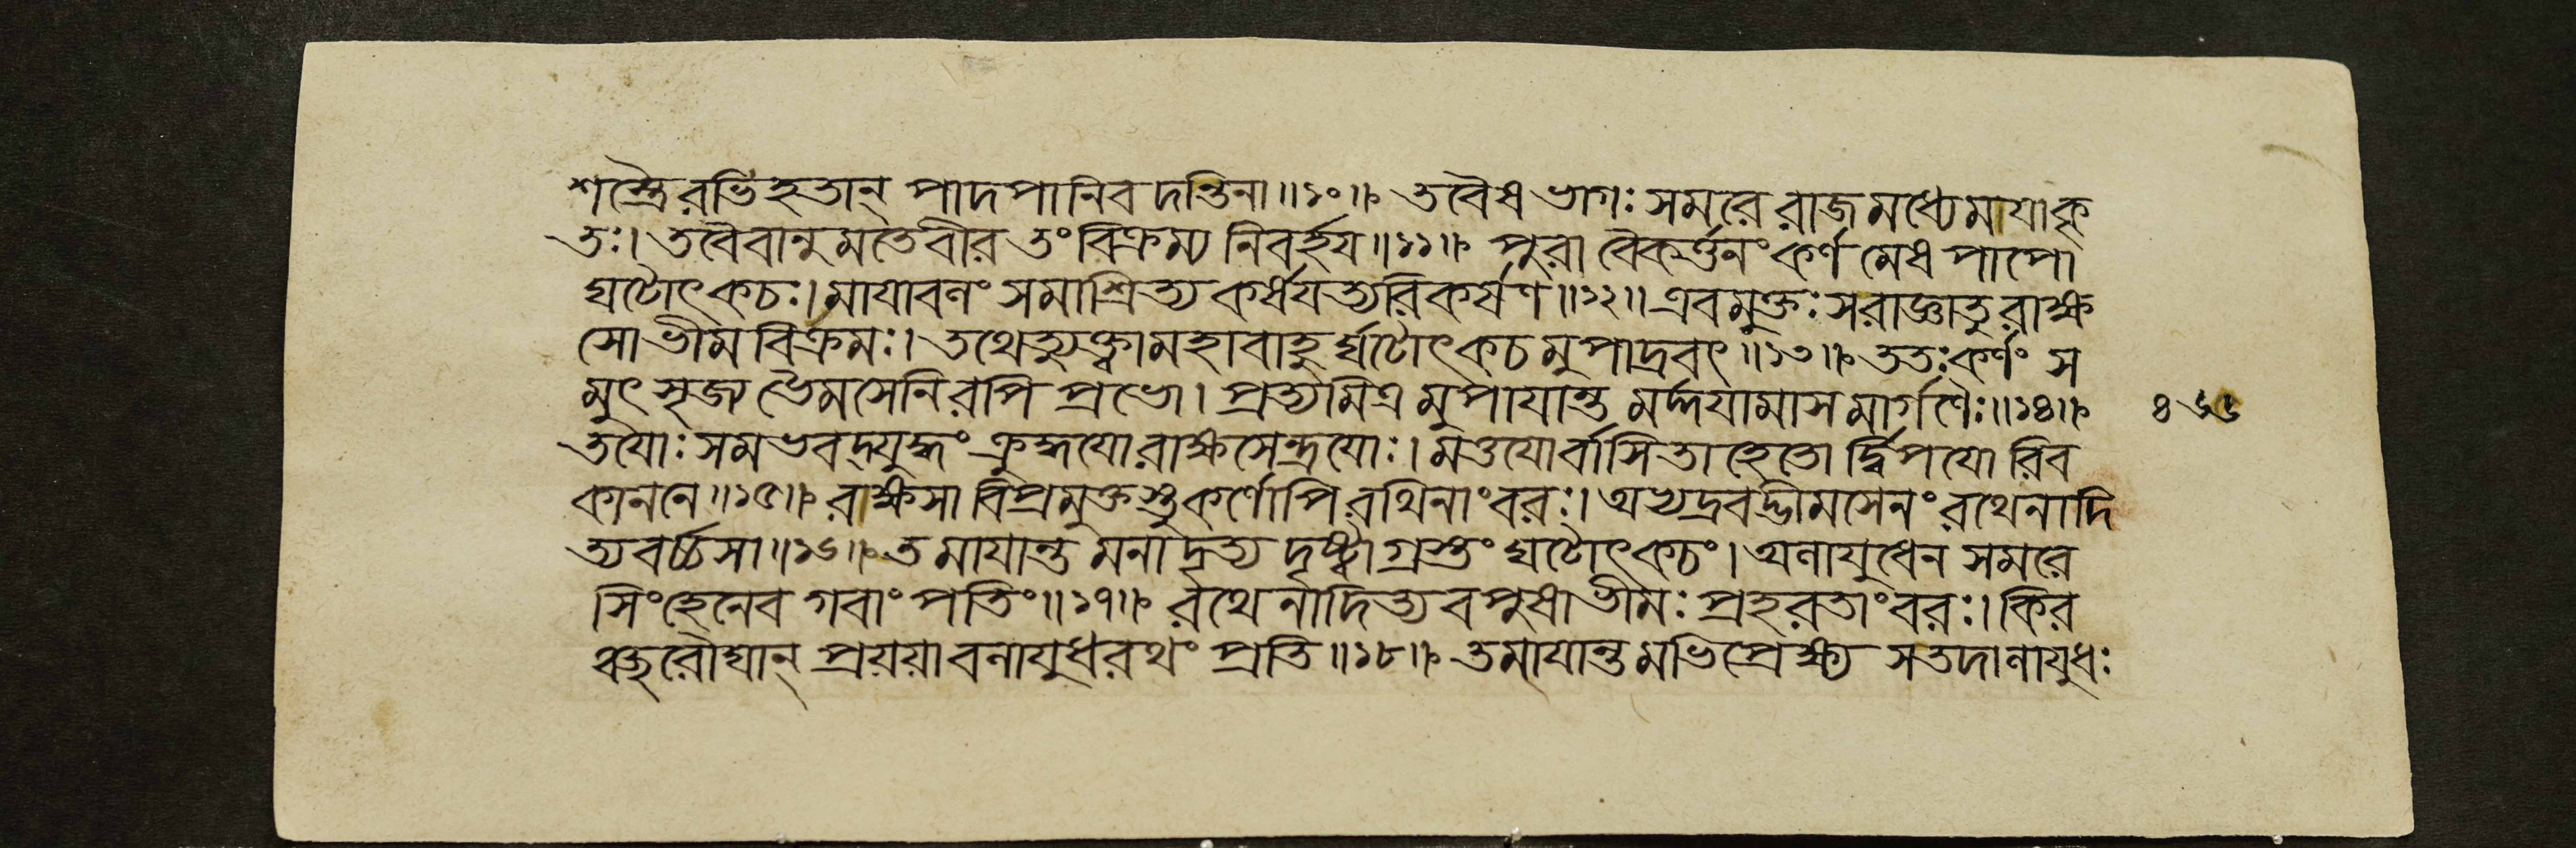 শস্ত্রৈরভিহতান্ পাদপানিব দন্তিনা॥১০॥ তবৈষ ভাগঃ সমরে রাজমধ্যে মায়াকৃ
তঃ। তবৈবানুমতে বীর তং বিক্রম্য নিবর্হয়॥১১॥ পুরা বৈকর্ত্তনং কর্ণমেষ পাপো
ঘটোৎকচঃ। মায়াবলং সমাশ্রিত্য কর্ষয়ত্যরিকর্ষণ॥১২॥ এবমুক্তঃ সরাজ্ঞাতু রাক্ষ
সো ভীমবিক্রমঃ। তথেত্যুক্ত্বা মহাবাহুর্ঘটোৎকচমুপাদ্রবৎ॥১৩॥ ততঃ কর্ণং স
মুৎসৃজ্য ভৈমসেনিরপি প্রভো। প্রত্যমিত্রমুপায়ান্ত মর্দ্দয়ামাস মার্গণৈঃ॥১৪॥ ৪৬৬
তয়োঃ সমভবদ্যুদ্ধং ক্রুদ্ধয়ো রাক্ষসেন্দ্রয়োঃ। মত্তয়োর্বাসিতাহেতো র্দ্বিপয়োরিব
কাননে॥১৫॥ রাক্ষসা বিপ্রমুক্তস্তু কর্ণোপি রথিনাংবরঃ। অভ্যদ্রবদ্ভীমসেনং রথেনাদি
ত্যবর্চ্চসা॥১৬॥ তমায়ান্ত মনাদৃত্য দৃষ্ট্বা গ্রস্তং ঘটোৎকচং। অলায়ুধেন সমরে
সিংহেনেব গবাংপতিং॥১৭॥ রথেনাদিত্যবপুষা ভীমঃ প্রহরতাংবরঃ। কির
ঞ্ছরৌঘান্ প্রয়য়াবলায়ুধরথং প্রতি॥১৮॥ তমায়ান্তমভিপ্রেক্ষ্য সতদালায়ুধঃ